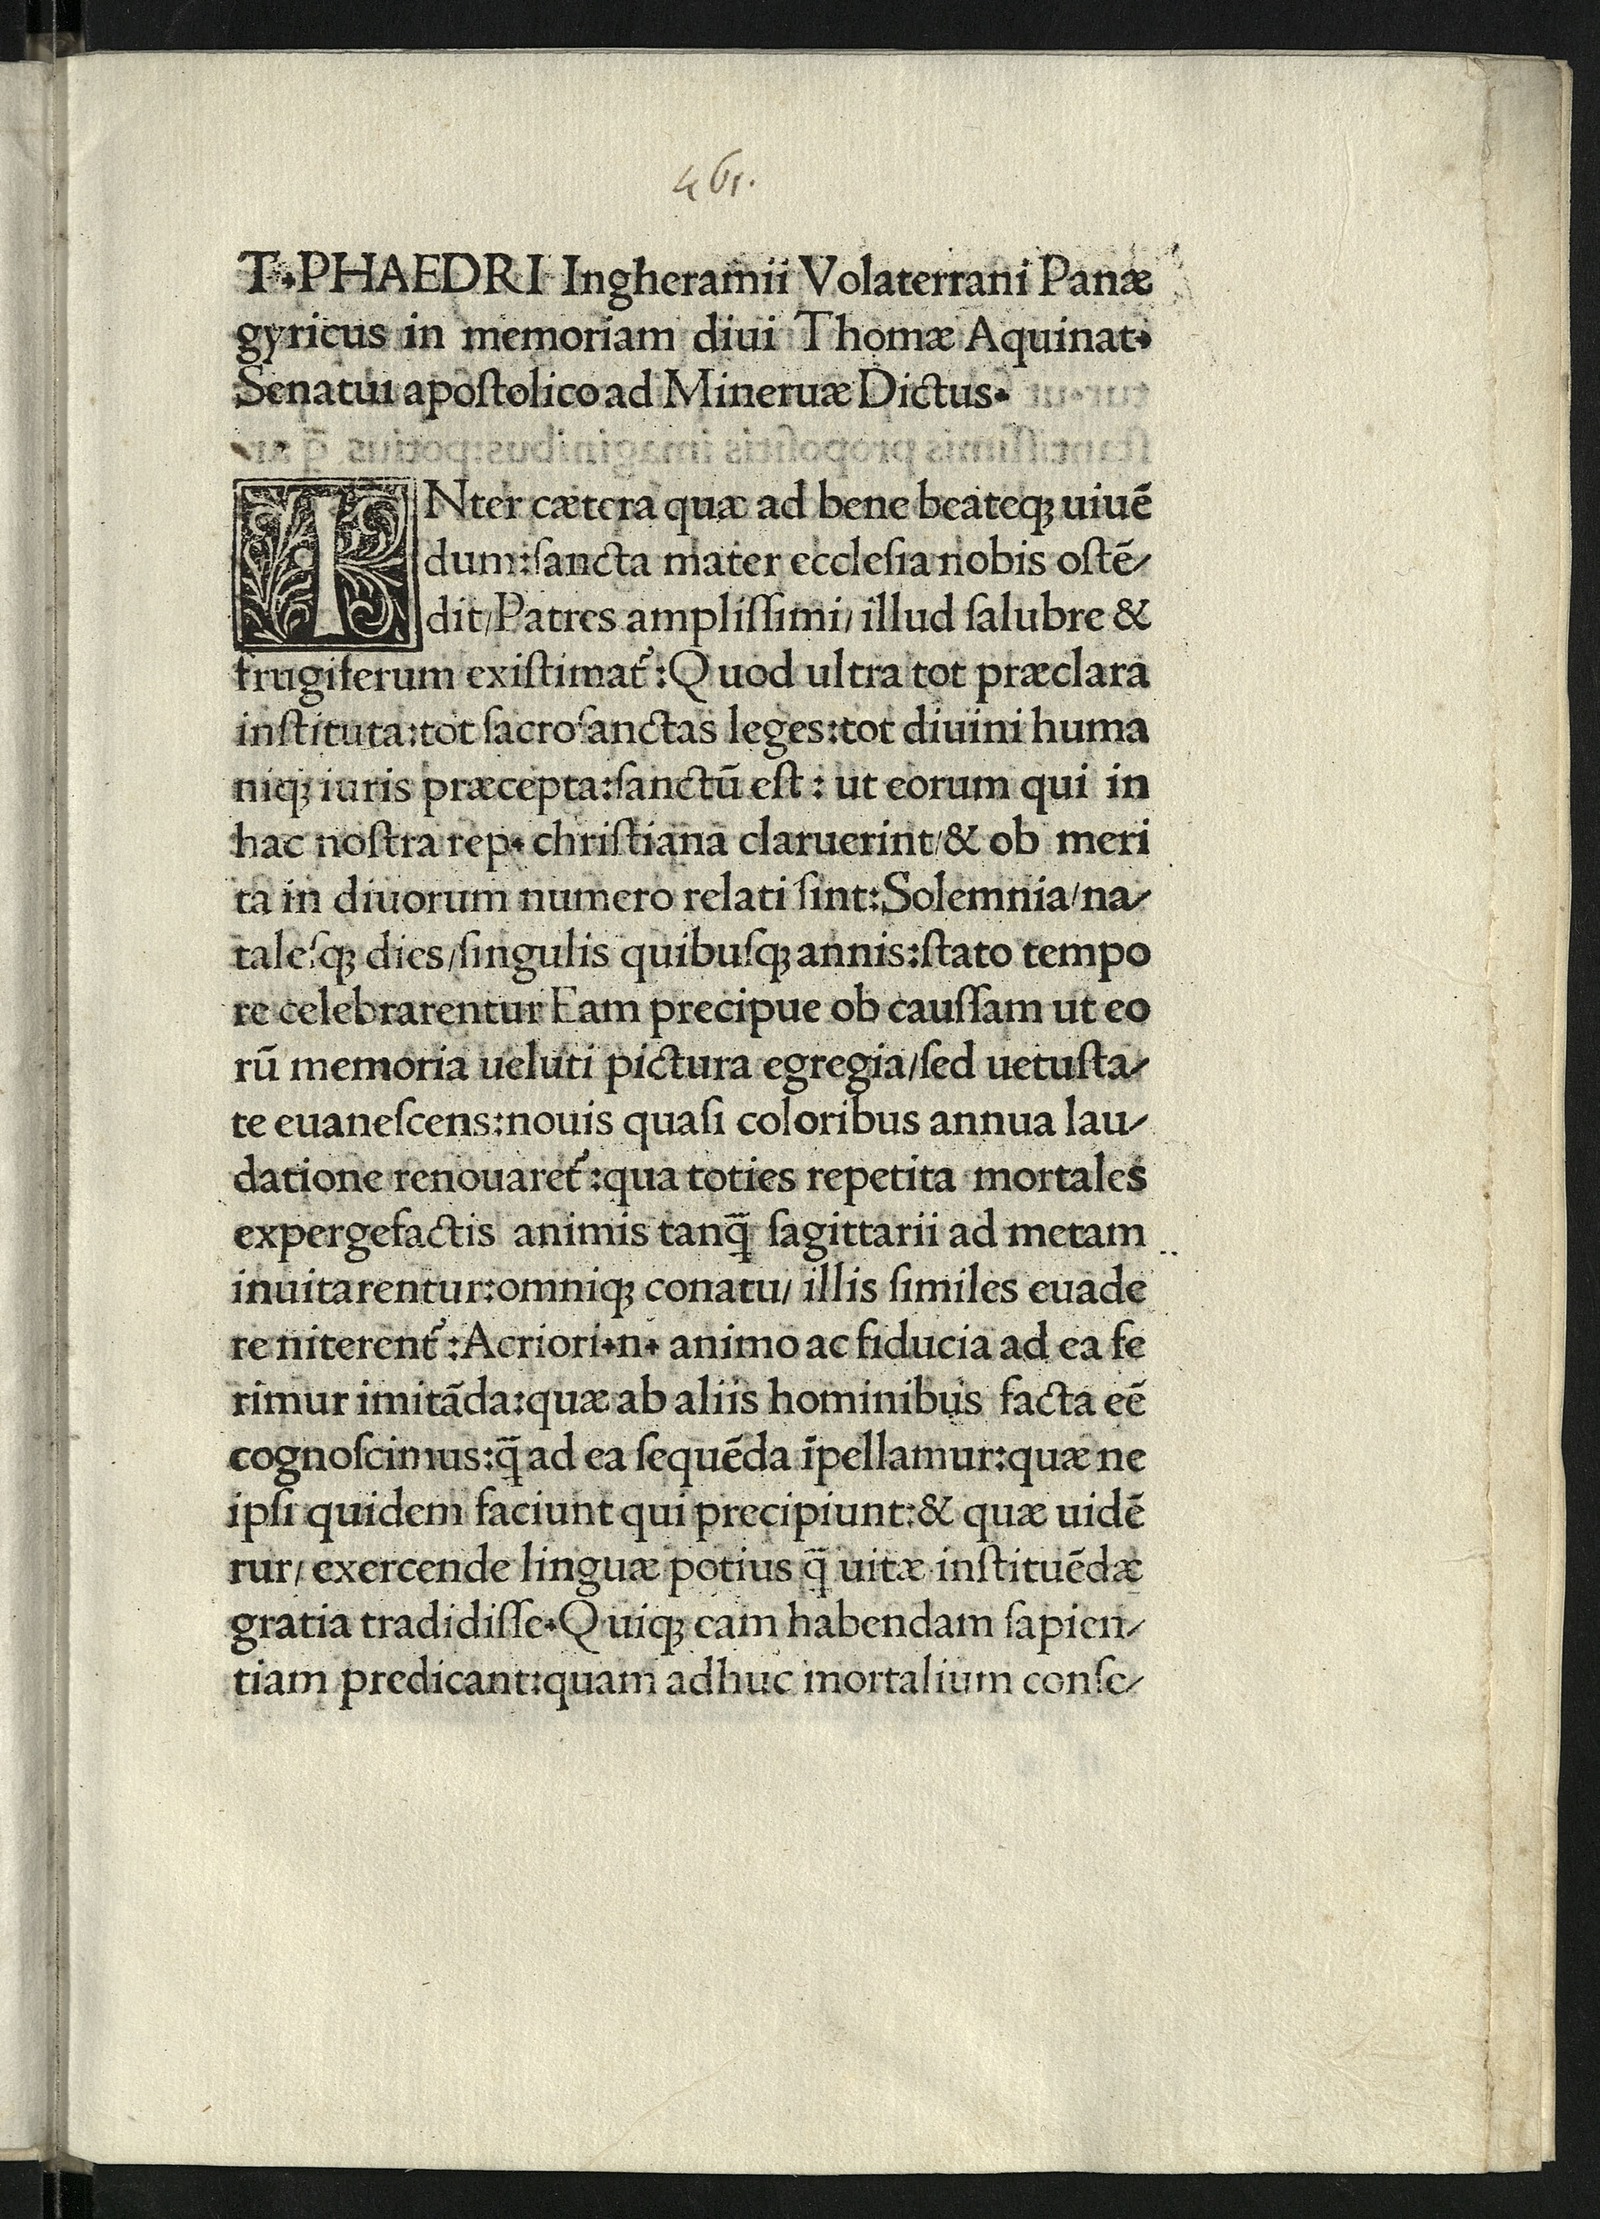 461.
T. PHAEDRI Ingheramii Volaterrani Panæ
gyricus in memoriam diui Thomæ Aquinat.
Senatui apoſtolico ad Mineruæ Dictus.
TNter cætera quæ ad bene beateqꝫ uiuē
dum:ſancta mater eccleſia nobis oſtē/
dit/Patres ampliſſimi/ illud ſalubre &
frugiferum exiſtimat᷑:Quod ultra tot præclara
inſtituta:tot ſacroſanctas leges:tot diuini huma
niqꝫ iuris præcepta:ſanctū eſt: ut eorum qui in
hac noſtra rep. chriſtiana claruerint/& ob meri
ta in diuorum numero relati ſint:Solemnia/na/
taleſqꝫ dies/ſingulis quibuſqꝫ annis:ſtato tempo
re celebrarentur Eam precipue ob cauſſam ut eo
rū memoria ueluti pictura egregia/ſed uetuſta/
te euaneſcens:nouis quaſi coloribus annua lau/
datione renouaret᷑:qua toties repetita mortales
expergefactis animis tanq̄ ſagittarii ad metam
inuitarentur:omniqꝫ conatu/ illis ſimiles euade
re niterent᷑:Acriori.n. animo ac fiducia ad ea fe
rimur imitāda:quæ ab aliis hominibus facta eē
cognoſcimus:q̄ ad ea ſequēda īpellamur:quæ ne
ipſi quidem faciunt qui precipiunt:& quæ uidē
rur/ exercende linguæ potius q̄ uitæ inſtituēdæ
gratia tradidiſſe.Quiqꝫ eam habendam ſapien/
tiam predicant:quam adhuc mortalium conſe/